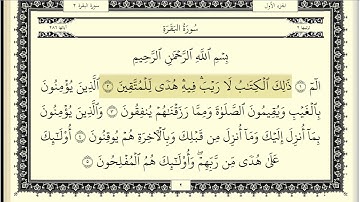 سورة البقرة ٢
الجزء الأول
سُورَةُ البَقَرَةِ
بِسْمِ اللَّهِ الرَّحْمَٰنِ الرَّحِيمِ
الٓمٓ ١ ذَٰلِكَ الْكِتَابُ لَا رَيْبَ ۛ فِيهِ هُدًى لِّلْمُتَّقِينَ ٢ الَّذِينَ يُؤْمِنُونَ
بِالْغَيْبِ وَيُقِيمُونَ الصَّلَوٰةَ وَمِمَّا رَزَقْنَٰهُمْ يُنفِقُونَ ٣ وَالَّذِينَ يُؤْمِنُونَ
بِمَا أُنزِلَ إِلَيْكَ وَمَا أُنزِلَ مِن قَبْلِكَ وَبِالْآخِرَةِ هُمْ يُوقِنُونَ ٤ أُولَٰئِكَ
عَلَىٰ هُدًى مِّن رَّبِّهِمْ ۖ وَأُولَٰئِكَ هُمُ الْمُفْلِحُونَ ٥
٢